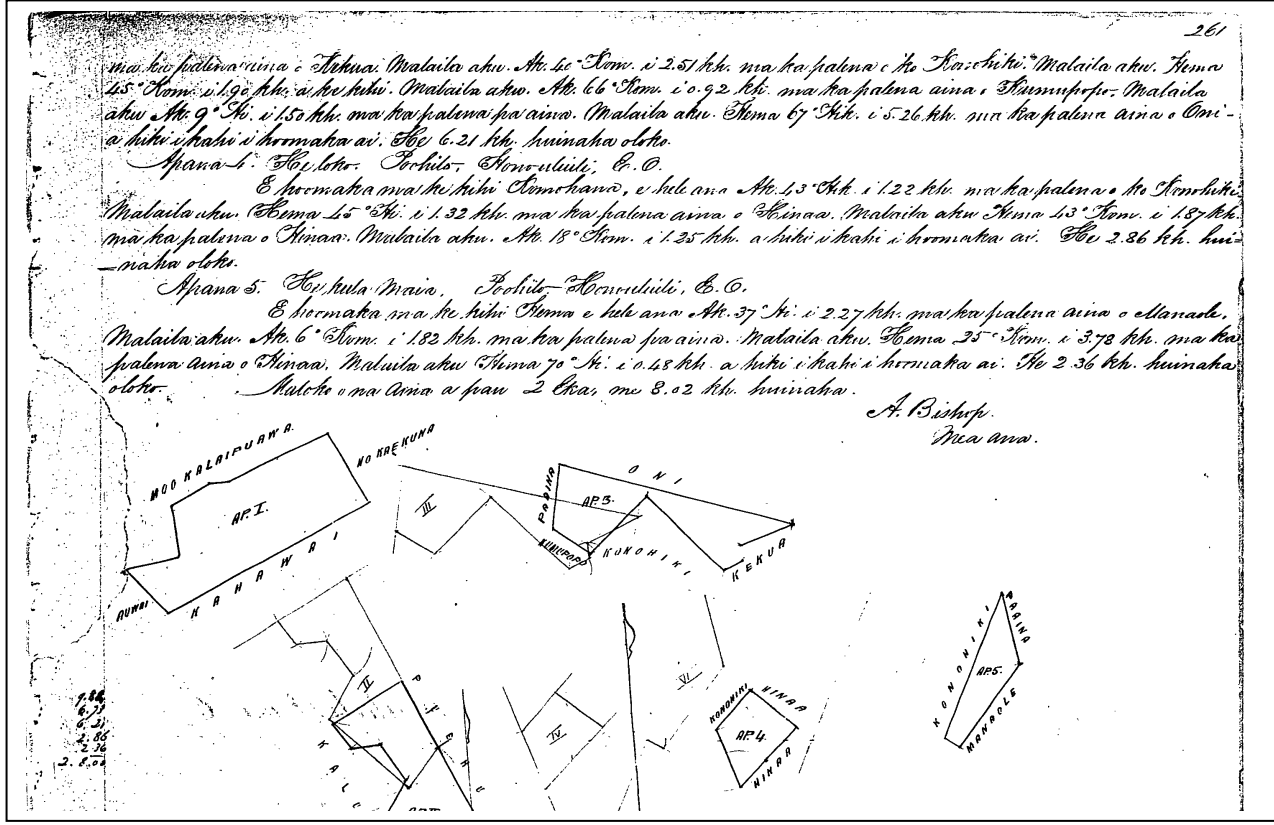 261
ma ka palena aina o Kekua. Malaila aku. Ak. 40° Kom. i 2.51 kh. ma ka palena o ko Konohiki. Malaila aku. Hema
45° Kom. i 1.90 kh. a ke kihi. Malaila aku. Ak. 66° Kom. i 0.92 kh. ma ka palena aina o Kumupopo. Malaila
aku Ak. 9° Hi. i 1.50 kh. ma ka palena pa aina. Malaila aku. Hema 67° Hik. i 5.26 kh. ma ka palena aina o Oni-
a hiki i kahi i hoomaka ai. He 6.21 kh. huinaha oloko.
Apana 4. He loko. Poohilo, Honouliuli, E. O.
E hoomaka ma ke kihi Komohana, e hele ana Ak. 43° Hik. i 1.22 kh. ma ka palena o ko Konohiki
Malaila aku. Hema 45° Hi. i 1.32 kh. ma ka palena aina o Hinaa. Malaila aku Hema 43° Kom. i 1.87 kh.
ma ka palena o Hinaa. Malaila aku. Ak. 18° Kom. i 1.25 kh. a hiki i kahi i hoomaka ai. He 2.86 kh. hui-
-naha oloko.
Apana 5. He kula Maia, Poohilo-Honouliuli, E. O.
E hoomaka ma ke kihi Hema e hele ana Ak. 37° Hi. i 2.27 kh. ma ka palena aina o Manaole.
Malaila aku. Ak. 6° Kom. i 1.82 kh. ma ka palena pa aina. Malaila aku. Hema 25° Kom. i 3.78 kh. ma ka
palena aina o Hinaa. Malaila aku Hema 70° Hi. i 0.48 kh. a hiki i kahi i hoomaka ai. He 2.36 kh. huinaha
oloko. Maloko o na Aina a pau 2 Eka, me 8.02 kh. huinaha.
A. Bishop.
Mea ana.
MOO KALAIPUAWA.
NO KAEKUNA
AP. I.
AUWAI
KAHAWAI
III
PAAINA
ONI
AP. 3.
KUMUPOPO
KONOHIKI
KEKUA
II
PUEHU
KALO
IV
VI
KONOHIKI
HINAA
AP. 4.
HINAA
KONOHIKI
PAAINA
AP. 5.
MANAOLE
6.21
2.86
2.36
2. 8.00